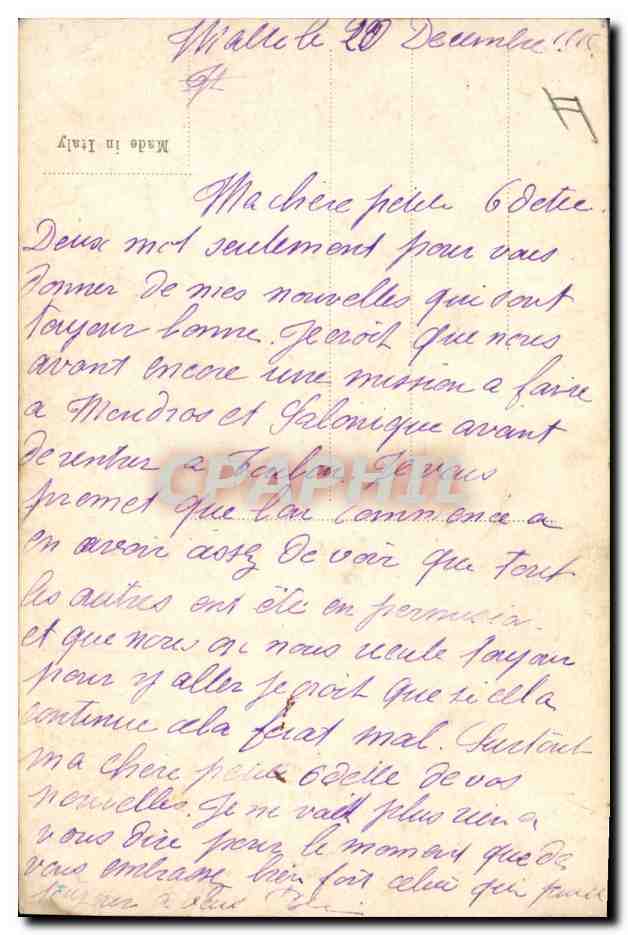 Malte le 20 Decembre 1915
Made in Italy
Ma chère petite Odette.
Deux mot seulement pour vous
donner de mes nouvelles qui sont
toujour bonne. Je croit que nous
avont encore une mission a faire
a Moudros et Salonique avant
de rentrer a Toulon. Je vous
promet que l'on commence a
en avoir assez de voir que tout
les autres ont été en permission
et que nous on nous recule toujour
pour y aller je croit que si cela
continue cela ferat mal. Surtout
ma chère petite Odette de vos
nouvelles. Je ne voit plus rien a
vous dire pour le moment que de
vous embrasse bien fort celui qui pense
toujour a vous
CPAPHIL